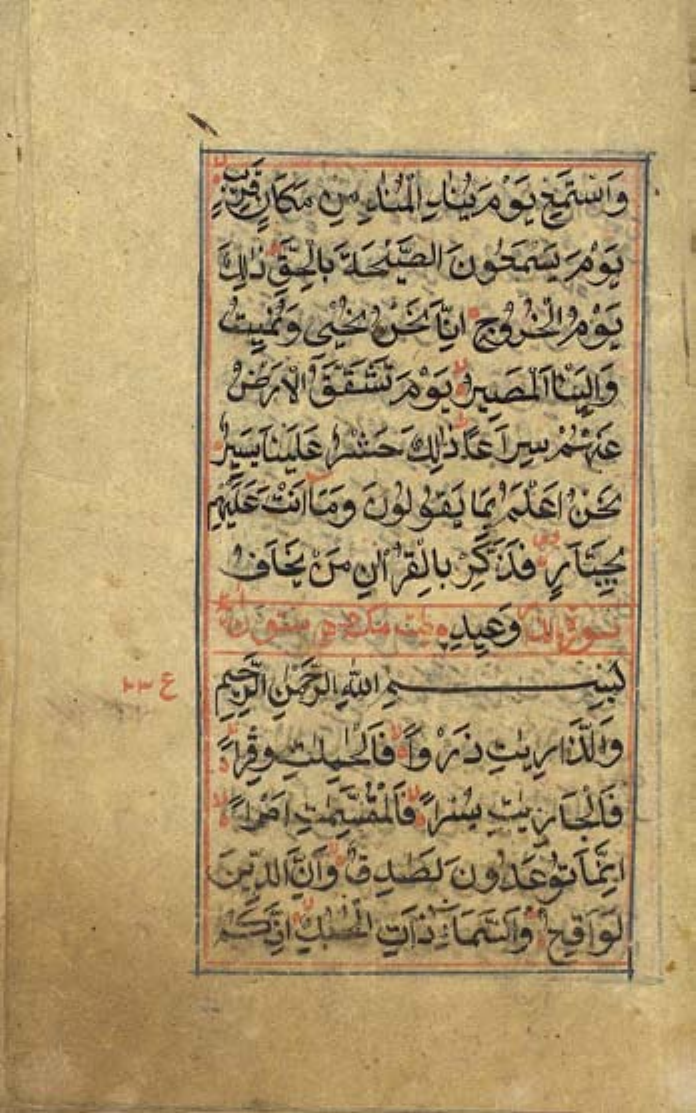 وَاسْتَمِعْ يَوْمَ يُنَادِ الْمُنَادِ مِنْ مَكَانٍ قَرِيبٍ
يَوْمَ يَسْمَعُونَ الصَّيْحَةَ بِالْحَقِّ ذٰلِكَ
يَوْمُ الْخُرُوجِ اِنَّا نَحْنُ نُحْيِي وَنُمِيتُ
وَاِلَيْنَا الْمَصِيرُ يَوْمَ تَشَقَّقُ الْاَرْضُ
عَنْهُمْ سِرَاعًا ذٰلِكَ حَشْرٌ عَلَيْنَا يَسِيرٌ
نَحْنُ اَعْلَمُ بِمَا يَقُولُونَ وَمَا اَنْتَ عَلَيْهِمْ
بِجَبَّارٍ فَذَكِّرْ بِالْقُرْاٰنِ مَنْ يَخَافُ
سورة وَعِيدِ مكية هي ستون
بِسْمِ اللّٰهِ الرَّحْمٰنِ الرَّحِيمِ
ع
وَالذَّارِيٰتِ ذَرْوًا فَالْحٰمِلٰتِ وِقْرًا
فَالْجَارِيٰتِ يُسْرًا فَالْمُقَسِّمٰتِ اَمْرًا
اِنَّمَا تُوعَدُونَ لَصَادِقٌ وَاِنَّ الدِّينَ
لَوَاقِعٌ وَالسَّمَاءِ ذَاتِ الْحُبُكِ اِنَّكُمْ